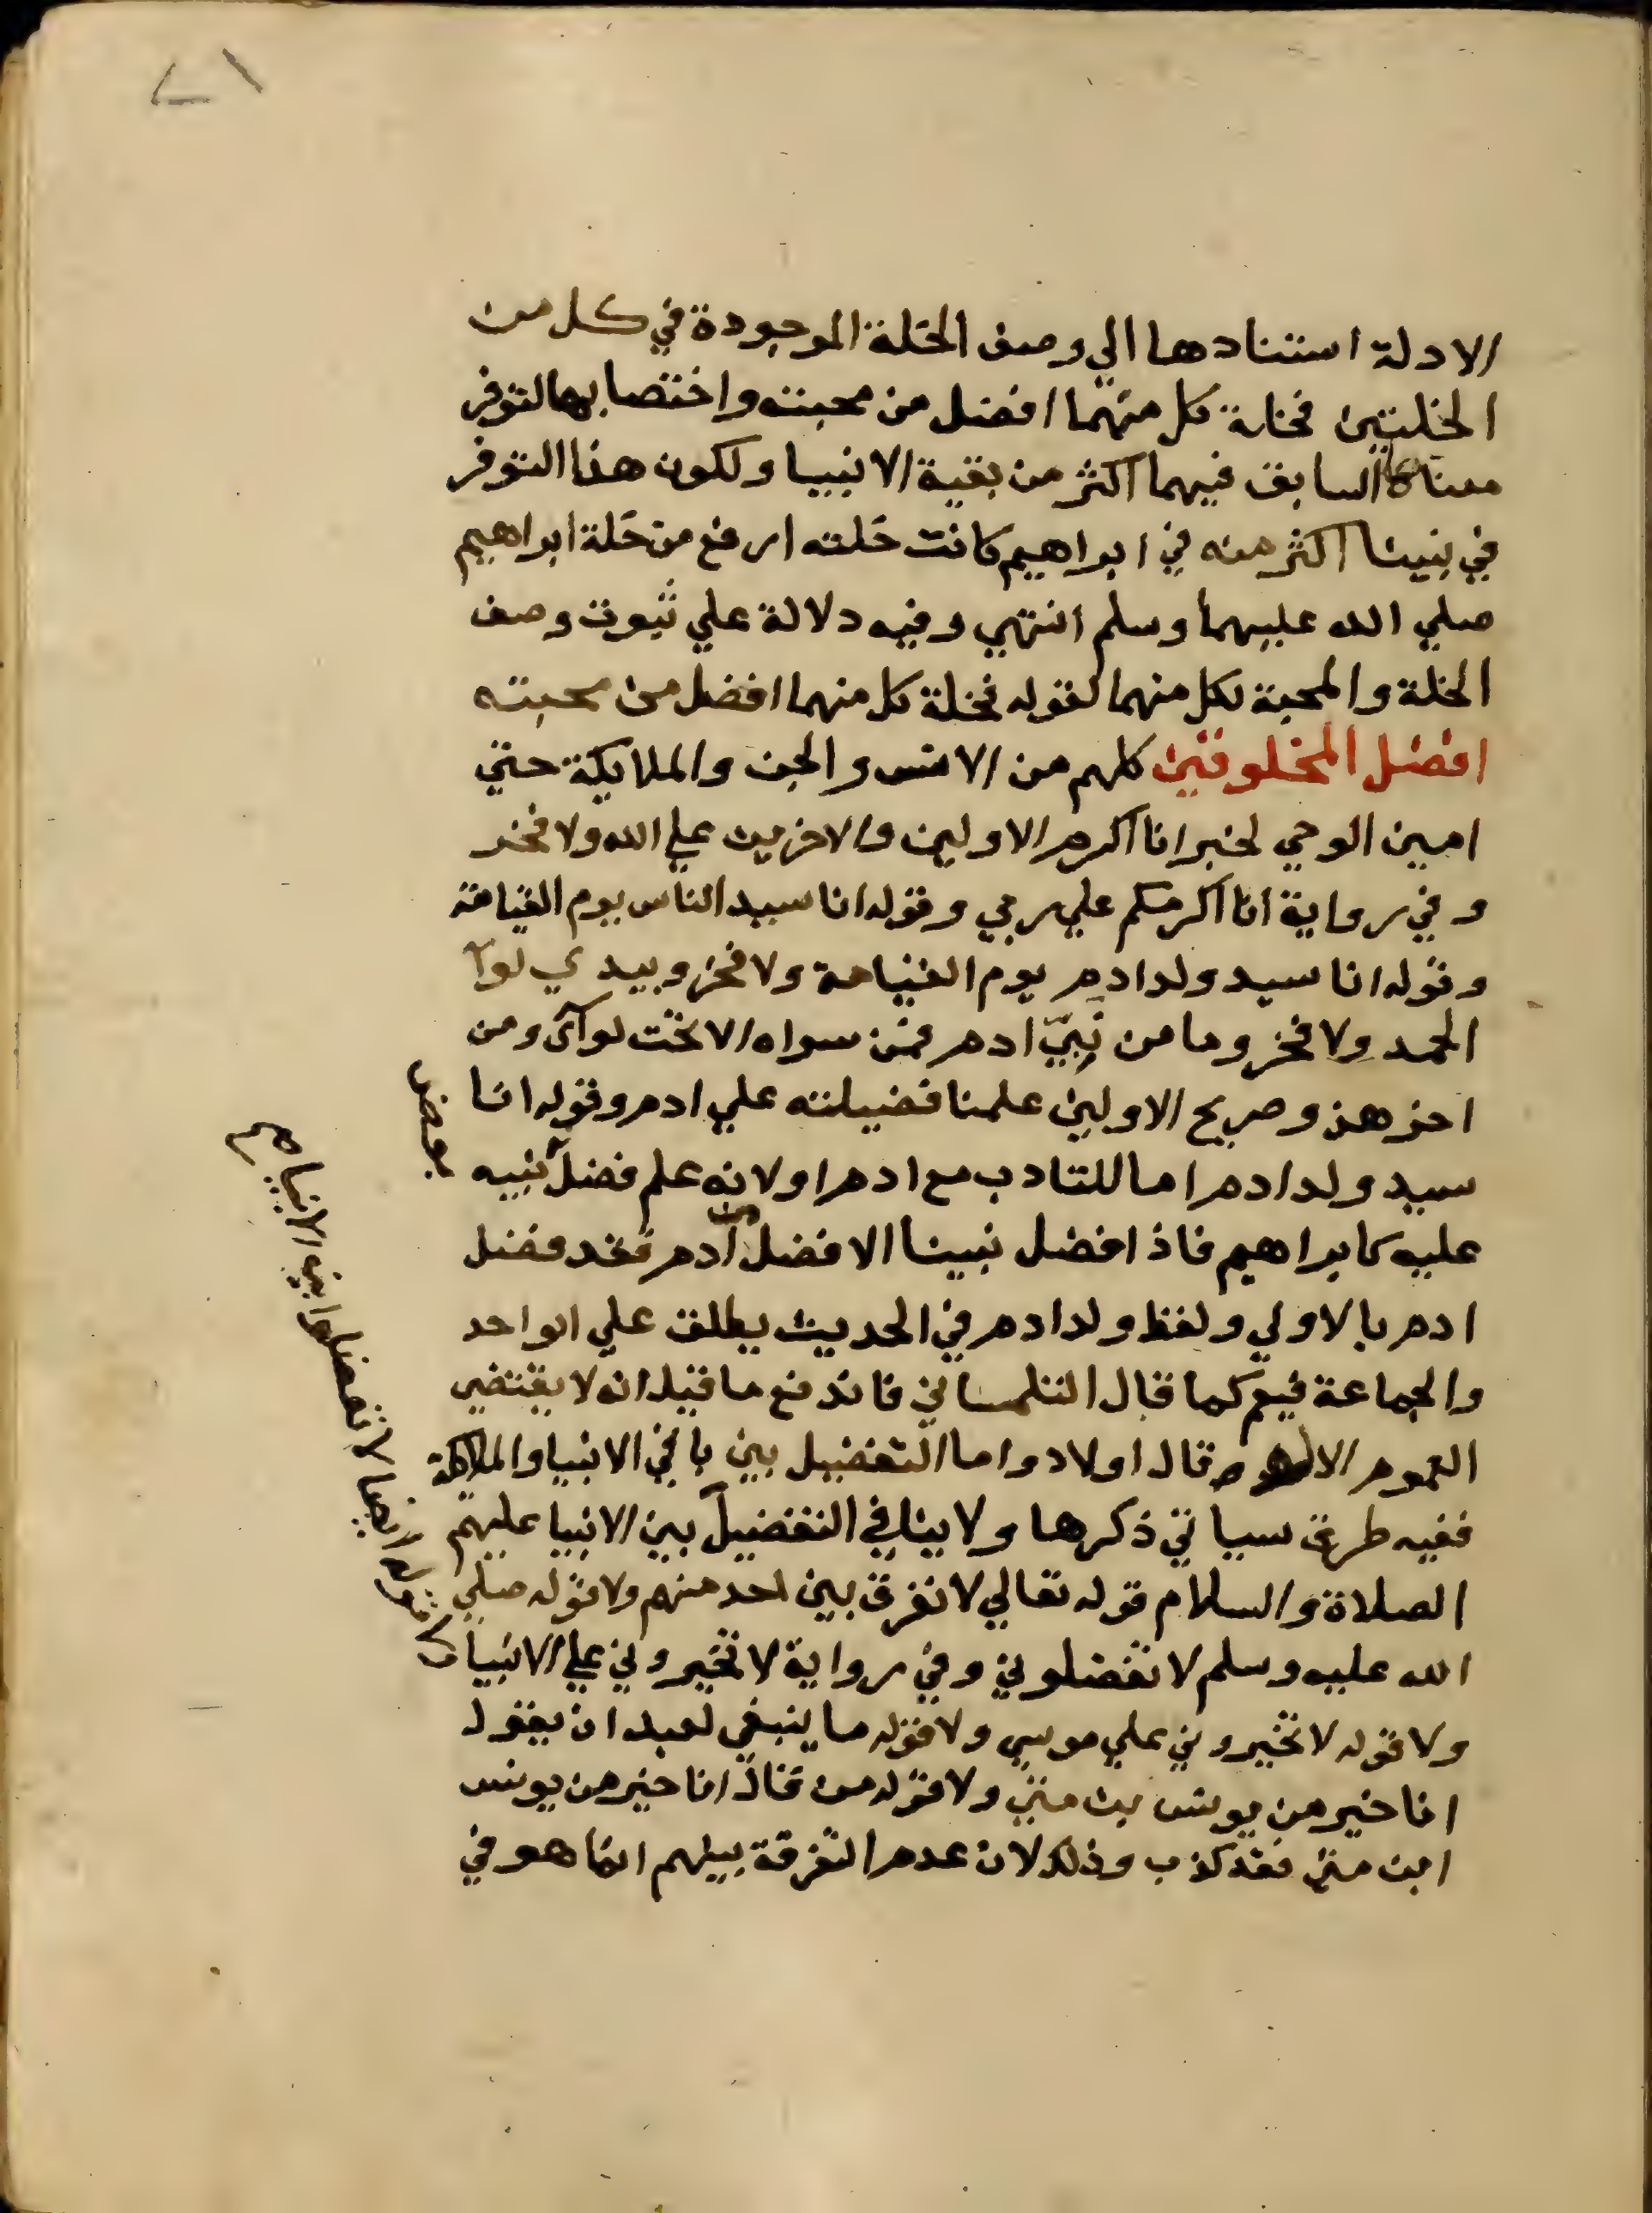 ١٧
الادلة استنادها الي وصف الخلة الموجودة في كل من
الخلتين فخلة كل منهما افضل من محبته واختصا بها لتوفر
معناها السابق فيهما اكثر من بقية الانبيا ولكون هذا التوفر
في نبينا اكثر منه في ابراهيم كانت خلته ارفع من خلة ابراهيم
صلي الله عليهما وسلم انتهي وفيه دلالة علي ثبوت وصف
الخلة والمحبة لكل منهما لقوله فخلة كل منهما افضل من محبته
افضل المخلوقين كلهم من الانس والجن والملايكة حتي
امين الوحي لخبر انا اكرم الاولين والاخرين علي الله ولا فخر
وفي رواية انا اكرمكم علي ربي وقوله انا سيد الناس يوم القيامة
وقوله انا سيد ولد ادم يوم القيامة ولا فخر وبيدي لوآ
الحمد ولا فخر وما من نبيّ ادم فمن سواه الا تحت لوآئ ومن
اخر هذ وصريح الاولين علمنا فضيلته علي ادم وقوله انا
سيد ولد ادم اما للتادب مع ادم او لانه علم فضل بنيه
عليه كابراهيم فاذا فضل نبينا الافضل من آدم فقد فضل
ادم بالاولي ولفظ ولد ادم في الحديث يطلق علي الواحد
والجماعة فيعم كما قال التلمساني فاندفع ما قيل انه لا يقتضي
العموم الا لو قال اولاد واما التفضيل بين باقي الانبيا والملائكة
ففيه طرق سياتي ذكرها ولا ينافي التفضيل بين الانبيا عليهم
الصلاة والسلام قوله تعالي لا نفرق بين احد منهم ولا قوله صلي
الله عليه وسلم لا تفضلوني وفي رواية لا تخيروني علي الانبيا
ولا قوله لا تخيروني علي موسي ولا قوله ما ينبغي لعبد ان يقول
انا خير من يونس بن متي ولا قوله من قال انا خير من يونس
ابن متي فقد كذب وذلك لان عدم التفرقة بينهم انما هو في
بعض
ولا قوله ايضا لا تفضلوا بين الانبيا